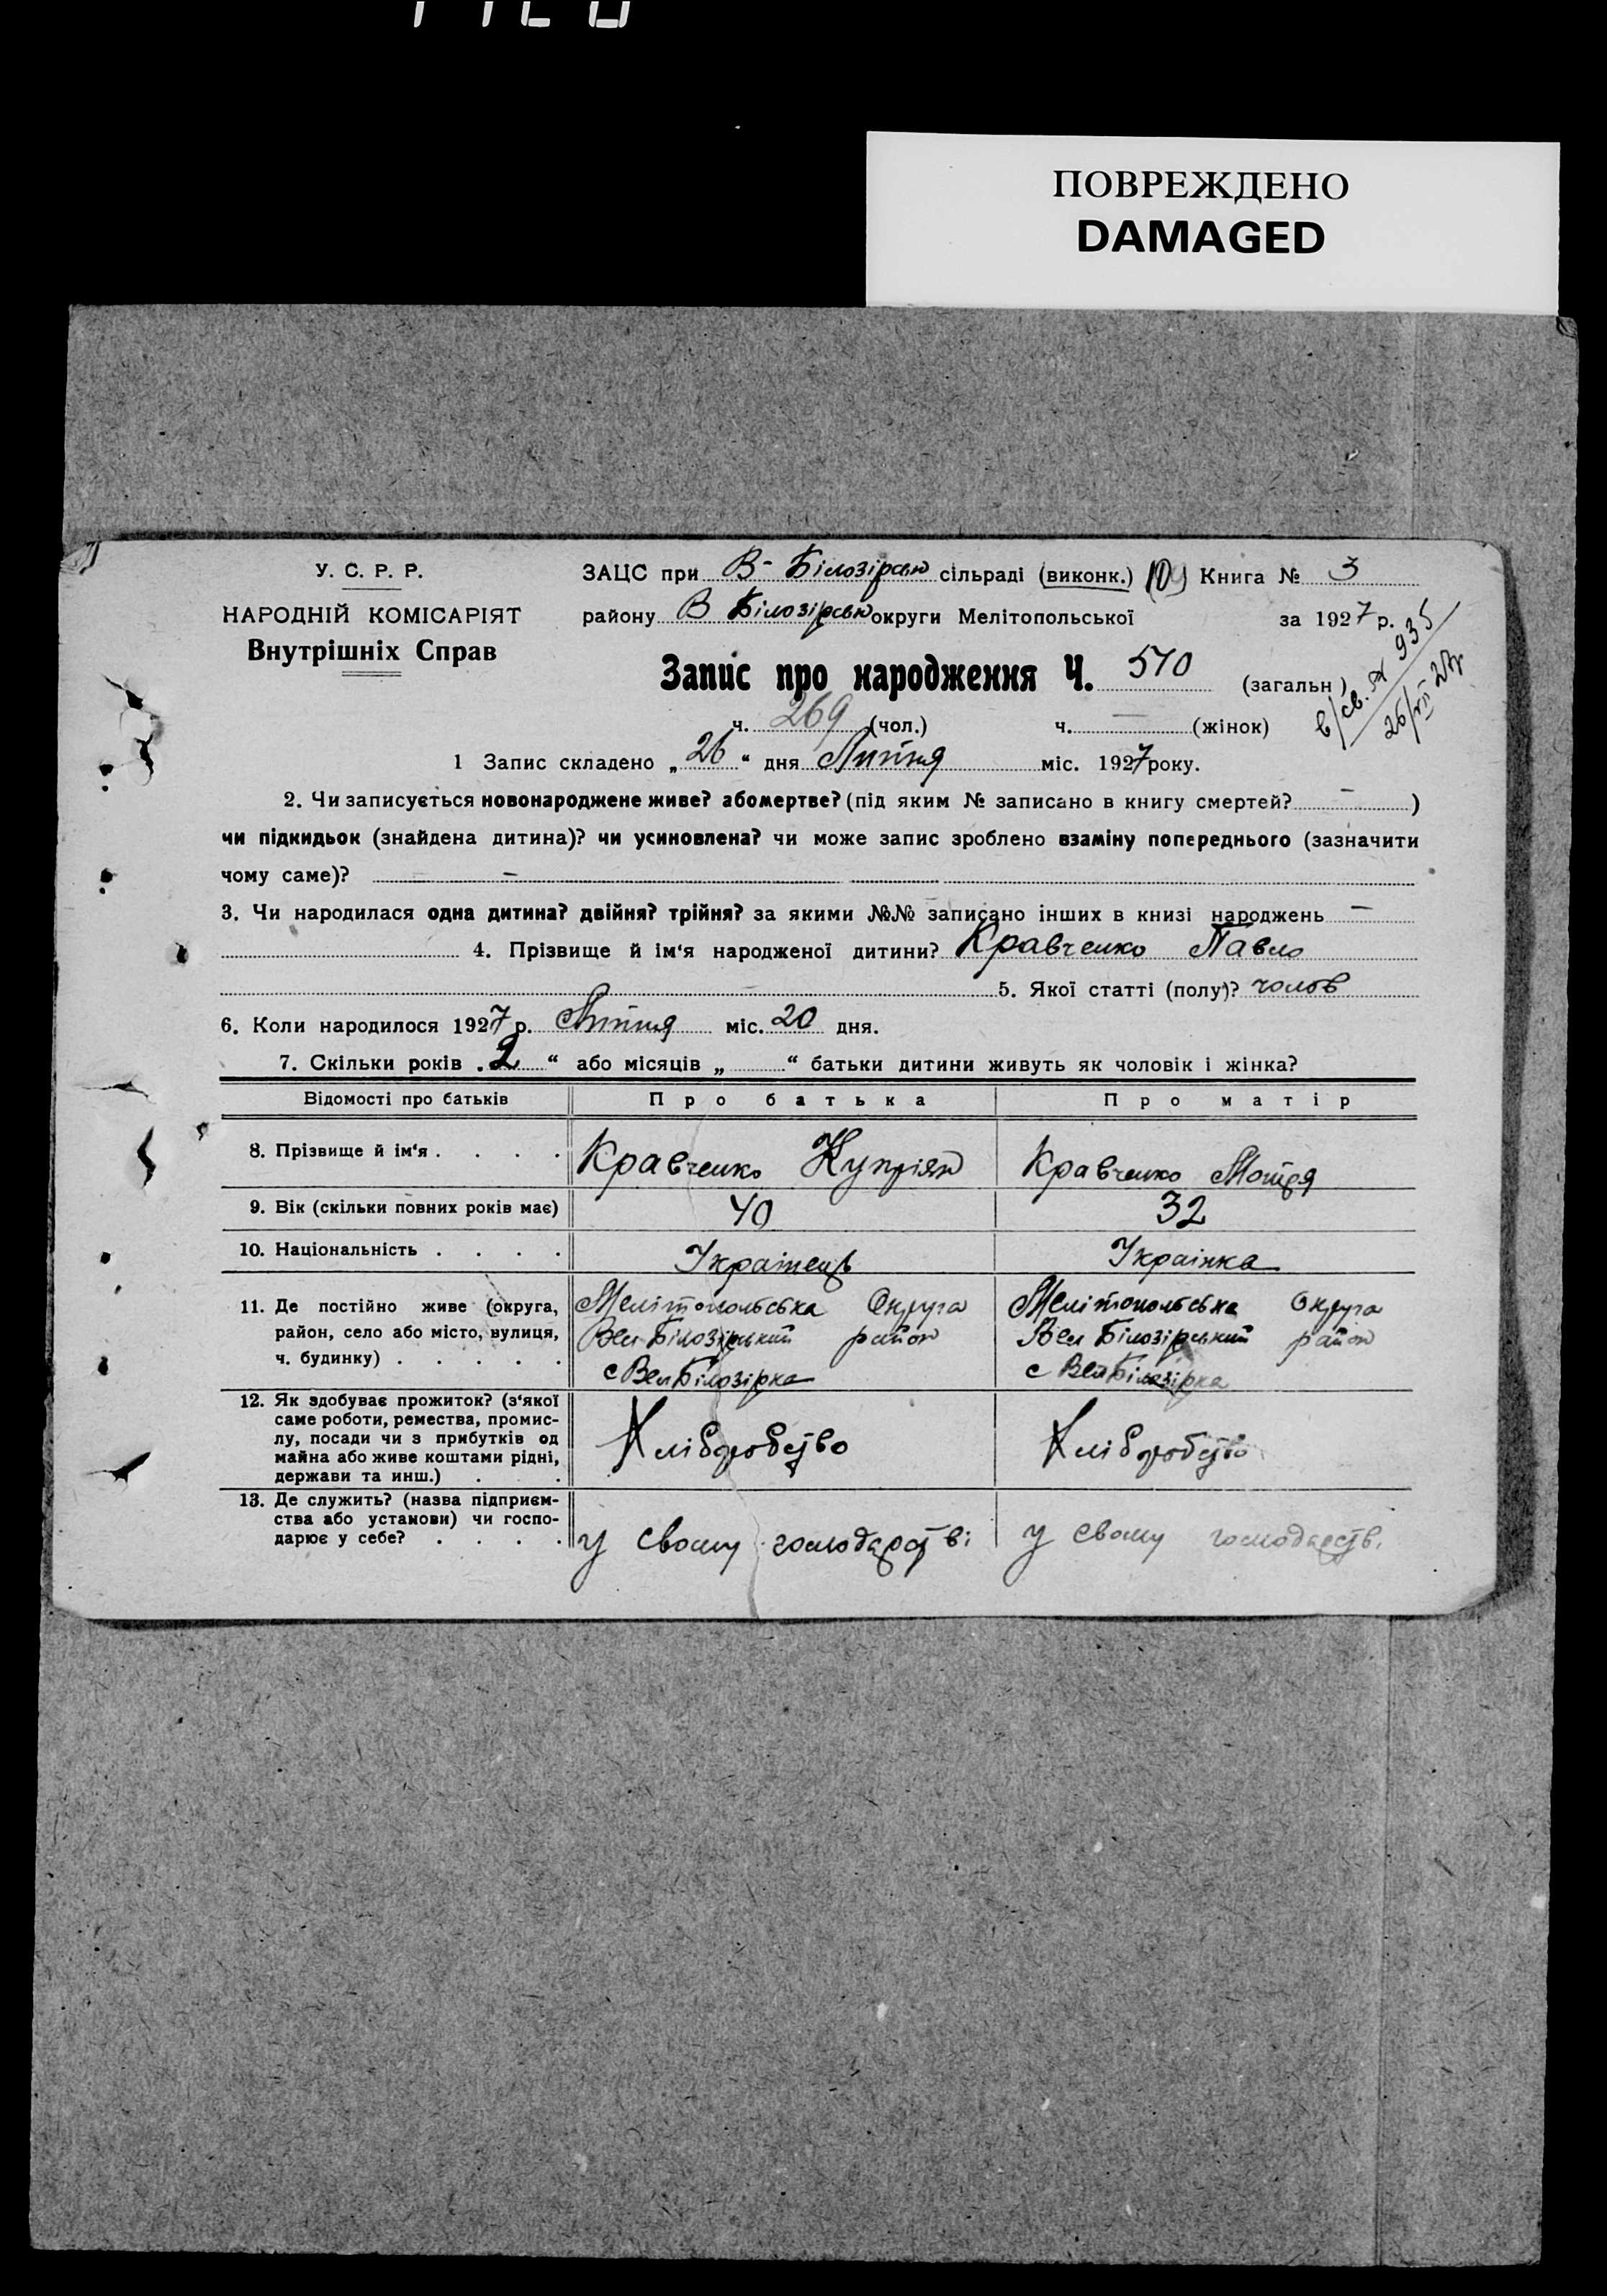 ПОВРЕЖДЕНО
DAMAGED
У. С. Р. Р.
НАРОДНІЙ КОМІСАРІЯТ
Внутрішніх Справ
ЗАЦС при В-Білозірськ сільраді (виконк.) Книга № 3
району В Білозірськ округи Мелітопольської за 1927 р.
Запис про народження Ч. 510 (загальн)
в/св. № 935
26/VII 27р
ч. 269 (чол.) ч. — (жінок)
1 Запис складено „26“ дня Липня міс. 1927 року.
2. Чи записується новонароджене живе? або мертве? (під яким № записано в книгу смертей? — )
чи підкидьок (знайдена дитина)? чи усиновлена? чи може запис зроблено взаміну попереднього (зазначити
чому саме)? —
3. Чи народилася одна дитина? двійня? трійня? за якими №№ записано інших в книзі народжень —
4. Прізвище й ім‘я народженої дитини? Кравченко Павло
5. Якої статті (полу)? чолов
6. Коли народилося 1927 р. Липня міс. 20 дня.
7. Скільки років „2“ або місяців „ “ батьки дитини живуть як чоловік і жінка?
Відомості про батьків Про батька Про матір
8. Прізвище й ім‘я . . . . Кравченко Купріян Кравченко Мотря
9. Вік (скільки повних років має) 40 32
10. Національність . . . . Українець Українка
11. Де постійно живе (округа, Мелітопольська Округа Мелітопольська Округа
район, село або місто, вулиця, Вел Білозірський район Вел Білозірський район
ч. будинку) . . . . . с Вел Білозірка с Вел Білозірка
12. Як здобуває прожиток? (з‘якої
саме роботи, ремества, промис-
лу, посади чи з прибутків од Хліборобство Хліборобство
майна або живе коштами рідні,
держави та инш.) . .
13. Де служить? (назва підприєм-
ства або установи) чи госпо-
дарює у себе? . . . . у свому господарстві у свому господарстві